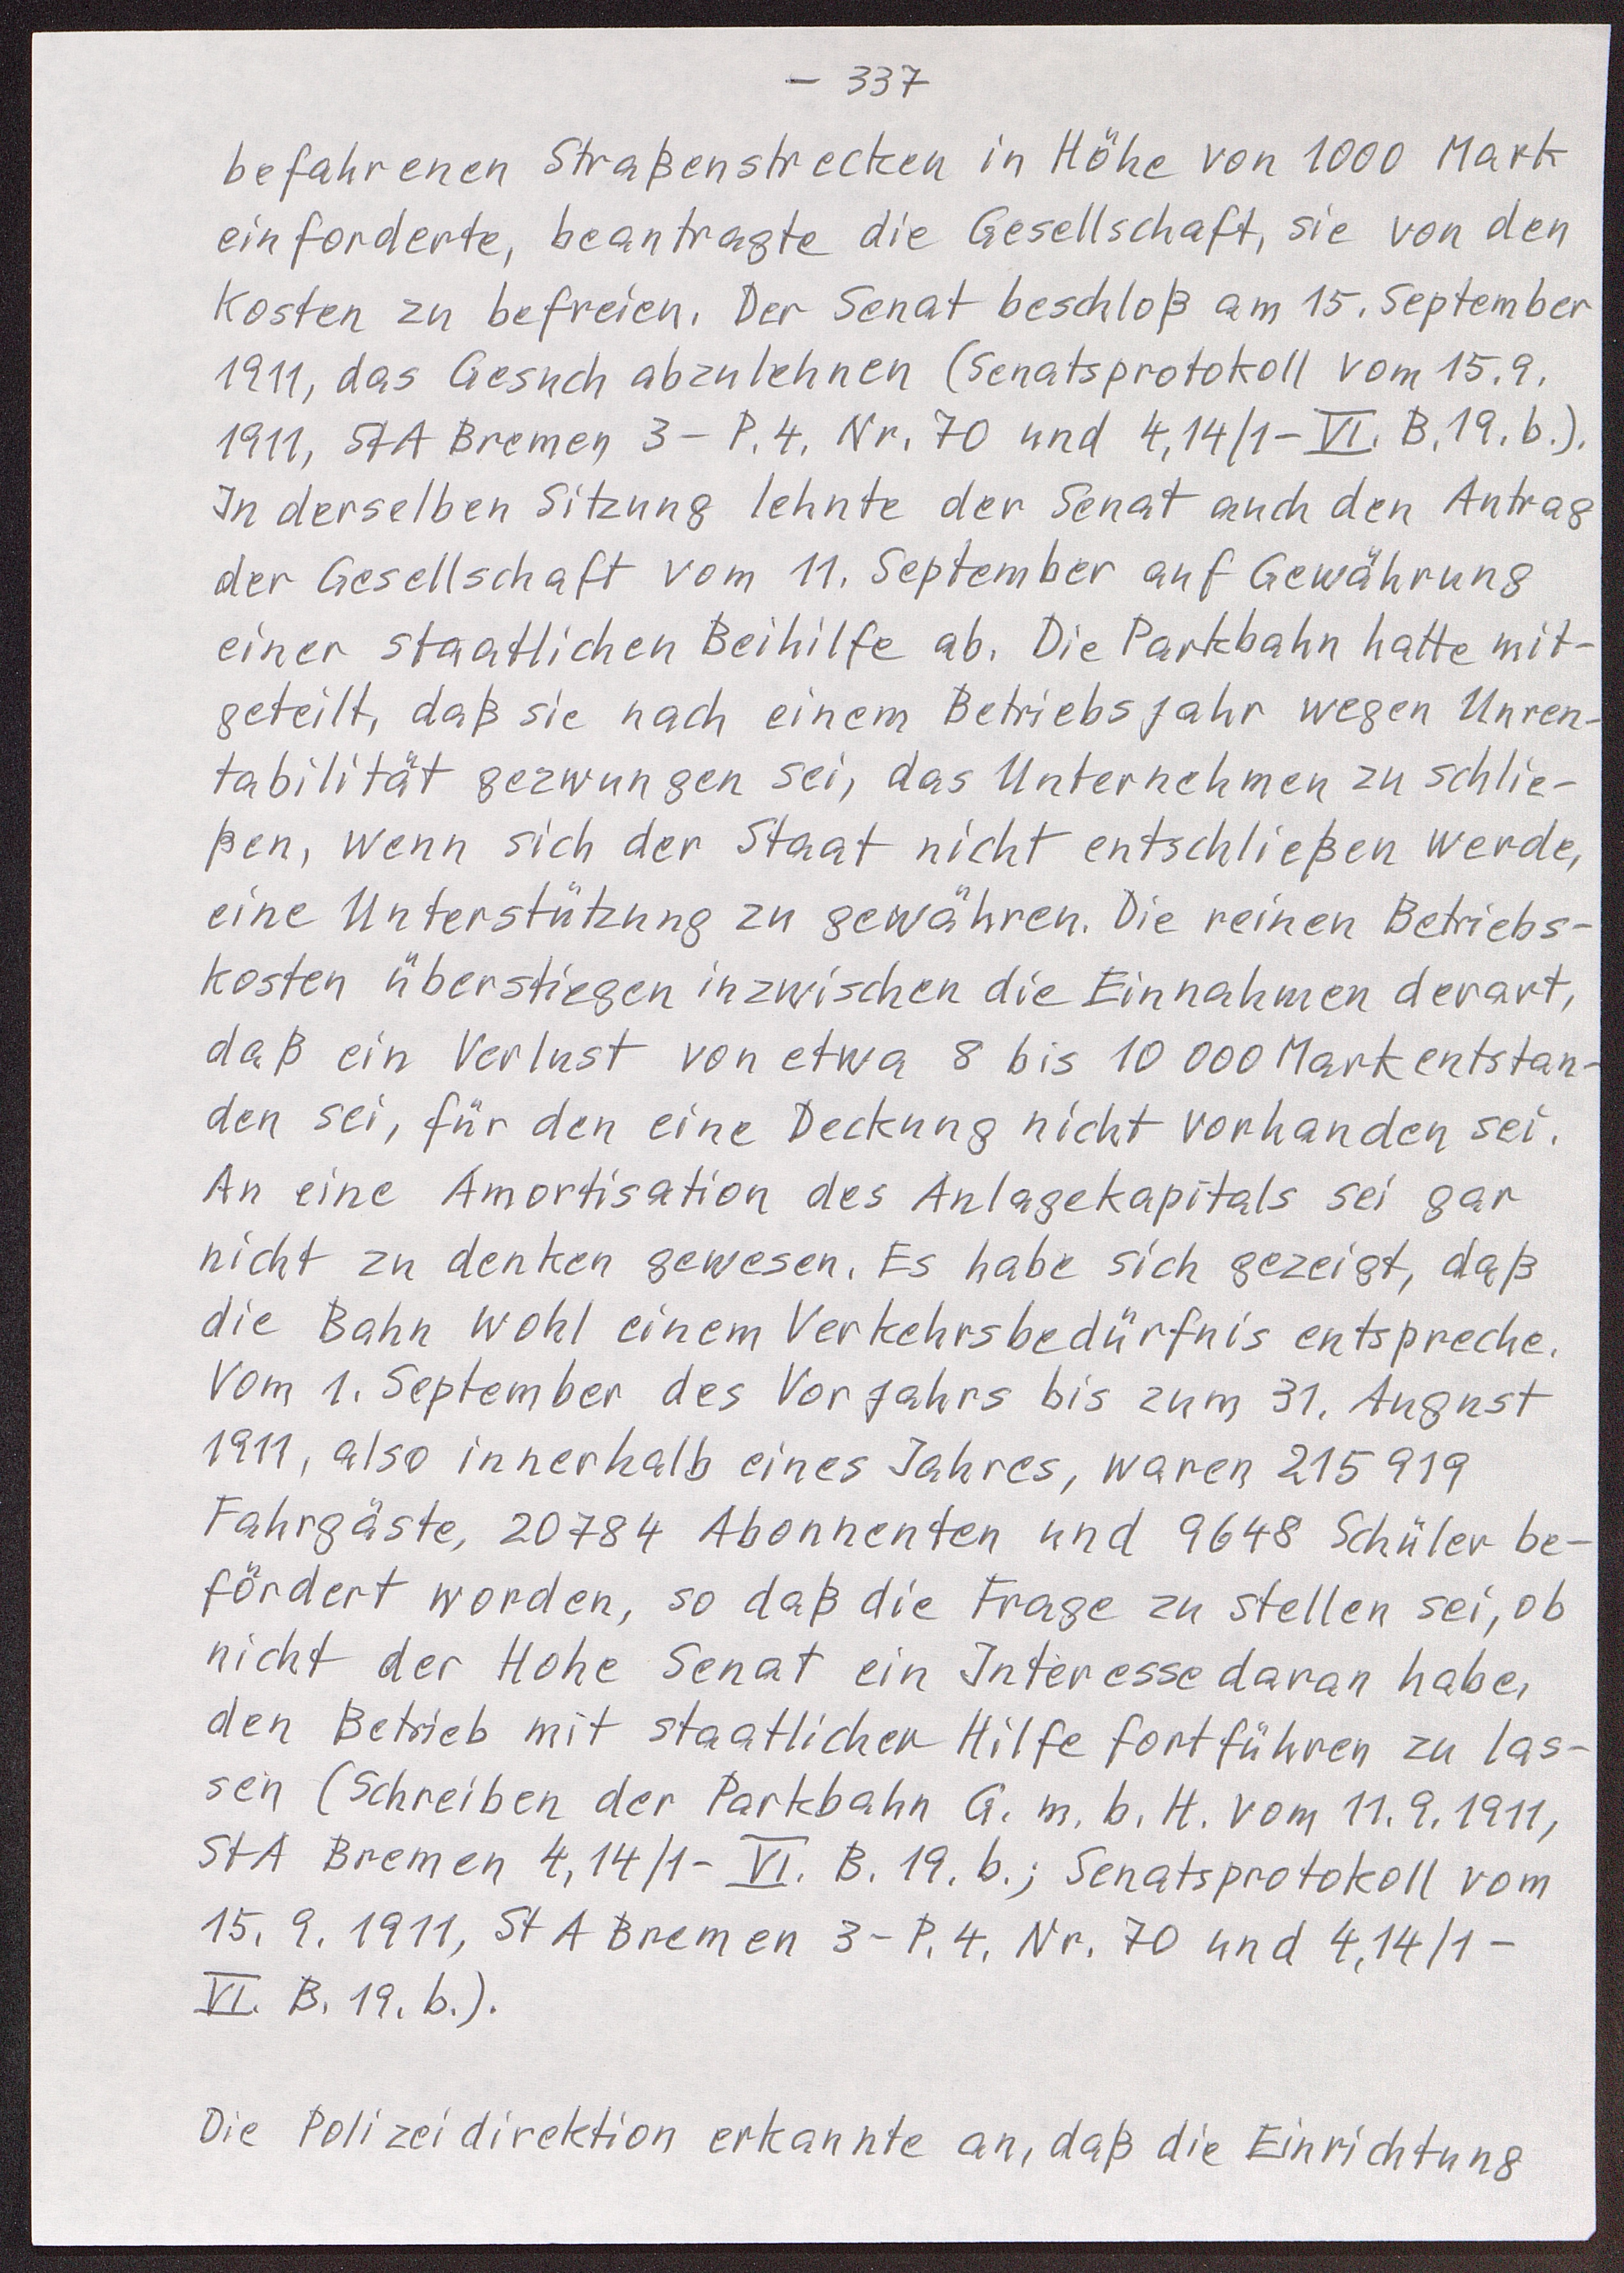 – 337
befahrenen Straßenstrecken in Höhe von 1000 Mark
einforderte, beantragte die Gesellschaft, sie von den
Kosten zu befreien. Der Senat beschloß am 15. September
1911, das Gesuch abzulehnen (Senatsprotokoll vom 15.9.
1911, StA Bremen 3 – P.4. Nr. 70 und 4,14/1 – VI. B.19.b.).
In derselben Sitzung lehnte der Senat auch den Antrag
der Gesellschaft vom 11. September auf Gewährung
einer staatlichen Beihilfe ab. Die Parkbahn hatte mit-
geteilt, daß sie nach einem Betriebsjahr wegen Unren-
tabilität gezwungen sei, das Unternehmen zu schlie-
ßen, wenn sich der Staat nicht entschließen werde,
eine Unterstützung zu gewähren. Die reinen Betriebs-
kosten überstiegen inzwischen die Einnahmen derart,
daß ein Verlust von etwa 8 bis 10 000 Mark entstan-
den sei, für den eine Deckung nicht vorhanden sei.
An eine Amortisation des Anlagekapitals sei gar
nicht zu denken gewesen. Es habe sich gezeigt, daß
die Bahn wohl einem Verkehrsbedürfnis entspreche.
Vom 1. September des Vorjahrs bis zum 31. August
1911, also innerhalb eines Jahres, waren 215 919
Fahrgäste, 20784 Abonnenten und 9648 Schüler be-
fördert worden, so daß die Frage zu stellen sei, ob
nicht der Hohe Senat ein Interesse daran habe,
den Betrieb mit staatlicher Hilfe fortführen zu las-
sen (Schreiben der Parkbahn G. m. b. H. vom 11. 9. 1911,
StA Bremen 4,14/1 – VI. B. 19. b.; Senatsprotokoll vom
15. 9. 1911, StA Bremen 3 – P. 4. Nr. 70 und 4,14/1 –
VI. B. 19. b.).
Die Polizeidirektion erkannte an, daß die Einrichtung